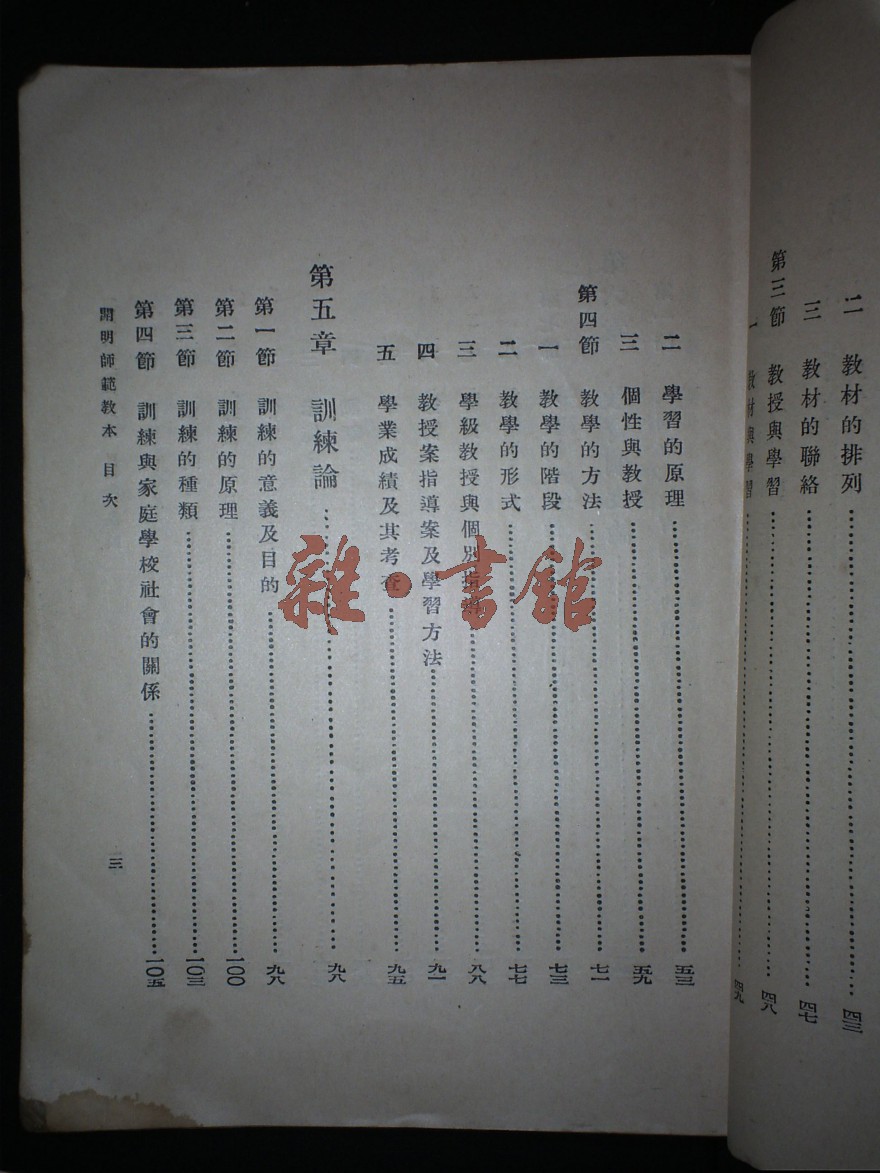 二 教材的排列 四三
三 教材的聯絡 四七
第三節 教授與學習 四八
一 教材與學習 四九
二 學習的原理 五三
三 個性與教授 五九
第四節 教學的方法 七一
一 教學的階段 七三
二 教學的形式 七七
三 學級教授與個別指導 八八
四 教授案指導案及學習方法 九一
五 學業成績及其考查 九五
第五章 訓練論 九八
第一節 訓練的意義及目的 九八
第二節 訓練的原理 一〇〇
第三節 訓練的種類 一〇三
第四節 訓練與家庭學校社會的關係 一〇五
開明師範教本 目次 三
雜·書館